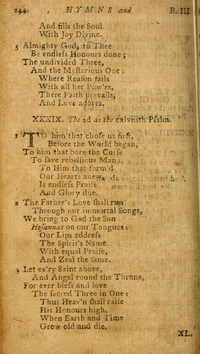 144 HYMNS and B. III
And fills the Soul
With Joy Divine.
5 Almighty God, to Thee
Be endless Honours done;
The undivided Three,
And the Mysterious One:
Where Reason fails
With all her Pow'rs,
There Faith prevails,
And Love adores.
XXXIX. The 2d as the cxlviiith Psalm.
1 TO him that chose us first,
Before the World began,
To him that bore the Curse
To save rebellious Man;
To Him that form'd
Our Hearts anew,
Is endless Praise
And Glory due.
2 The Father's Love shall run
Through our immortal Songs,
We bring to God the Son
Hosannas on our Tongues:
Our Lips address
The Spirit's Name
With equal Praise,
And Zeal the same.
3 Let ev'ry Saint above,
And Angel round the Throne,
For ever bless and love
The sacred Three in One:
Thus Heav'n shall raise
His Honours high,
When Earth and Time
Grow old and die.
XL.